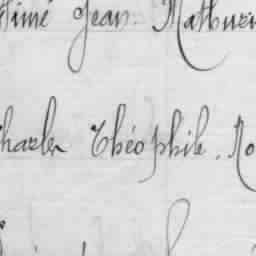 Aimé Jean Mathurin
Charles Théophile. No